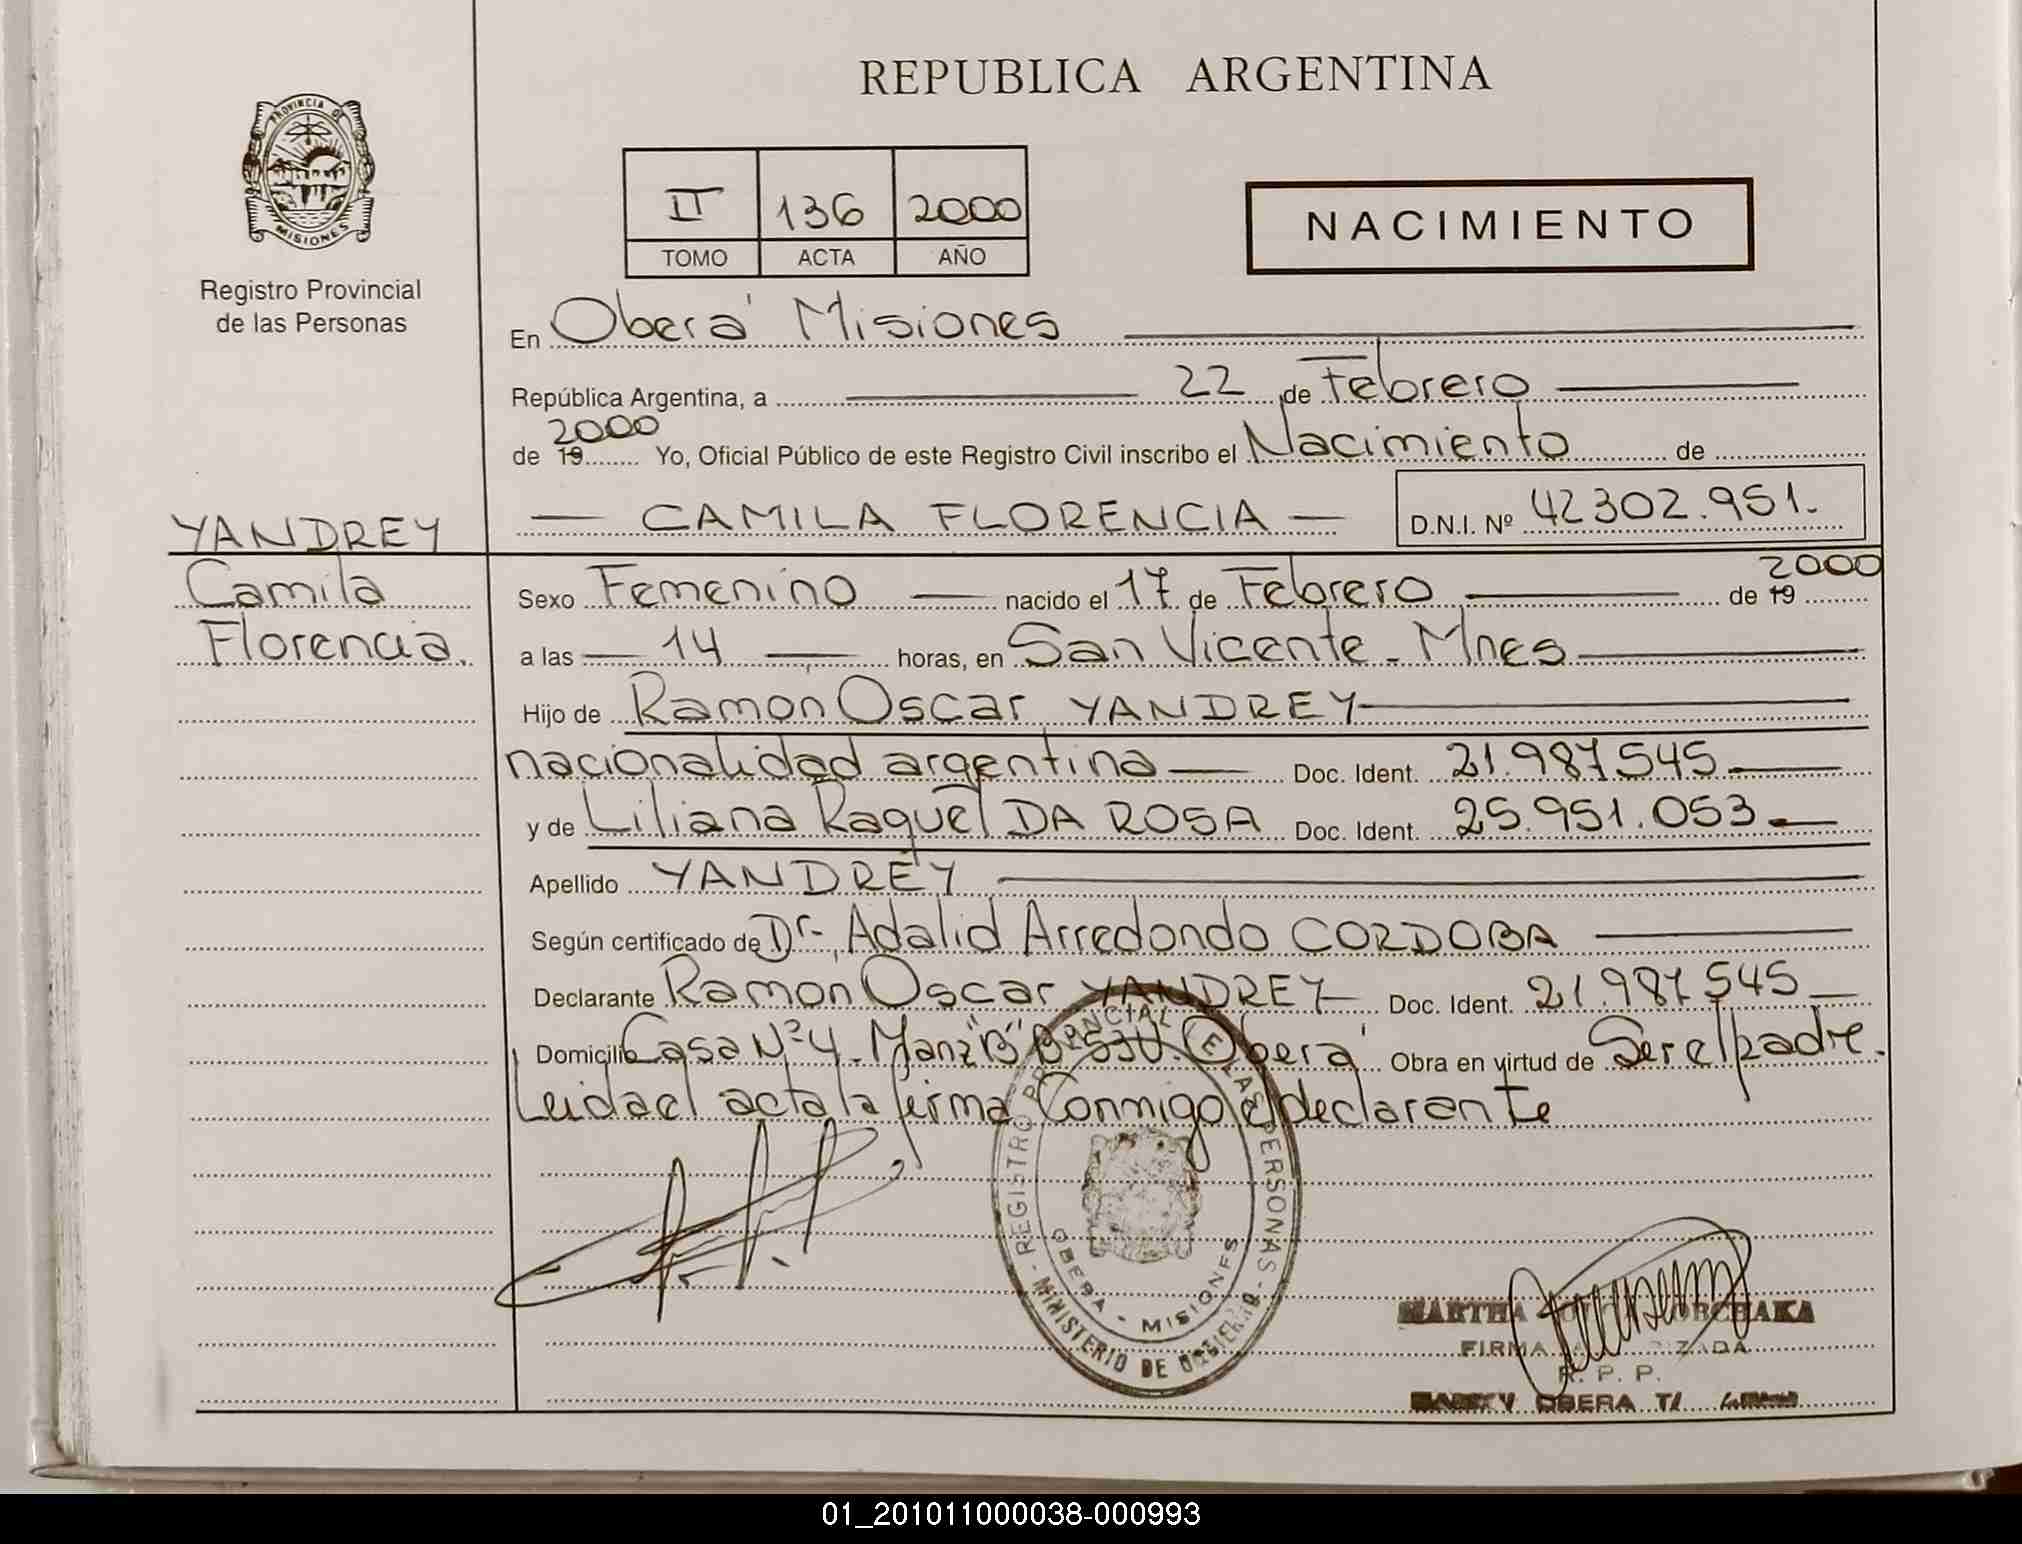 REPUBLICA ARGENTINA
PROVINCIA DE
MISIONES
Registro Provincial
de las Personas
II 136 2000
TOMO ACTA AÑO
NACIMIENTO
En Oberá Misiones
República Argentina, a 22 de Febrero
2000
de 19 Yo, Oficial Público de este Registro Civil inscribo el Nacimiento de
— CAMILA FLORENCIA — D.N.I. Nº 42302.951.
YANDREY
Camila
Florencia.
2000
Sexo Femenino — nacido el 17 de Febrero de 19
a las — 14 — horas, en San Vicente - Mnes
Hijo de Ramón Oscar YANDREY
nacionalidad argentina — Doc. Ident. 21.987.545
y de Liliana Raquel DA ROSA Doc. Ident. 25.951.053
Apellido YANDREY
Según certificado de Dr. Adalid Arredondo CORDOBA
Declarante Ramón Oscar YANDREY Doc. Ident. 21.987.545
Domicilio Casa Nº 4 - Manz "B" Bº 530 - Oberá Obra en virtud de Ser el padre.
Leida el acta la firma Conmigo el declarante
REGISTRO PROVINCIAL DE LAS PERSONAS
OBERA - MISIONES
MINISTERIO DE GOBIERNO
MARTHA
FIRMA
R. P. P.
OBERA
01_201011000038-000993